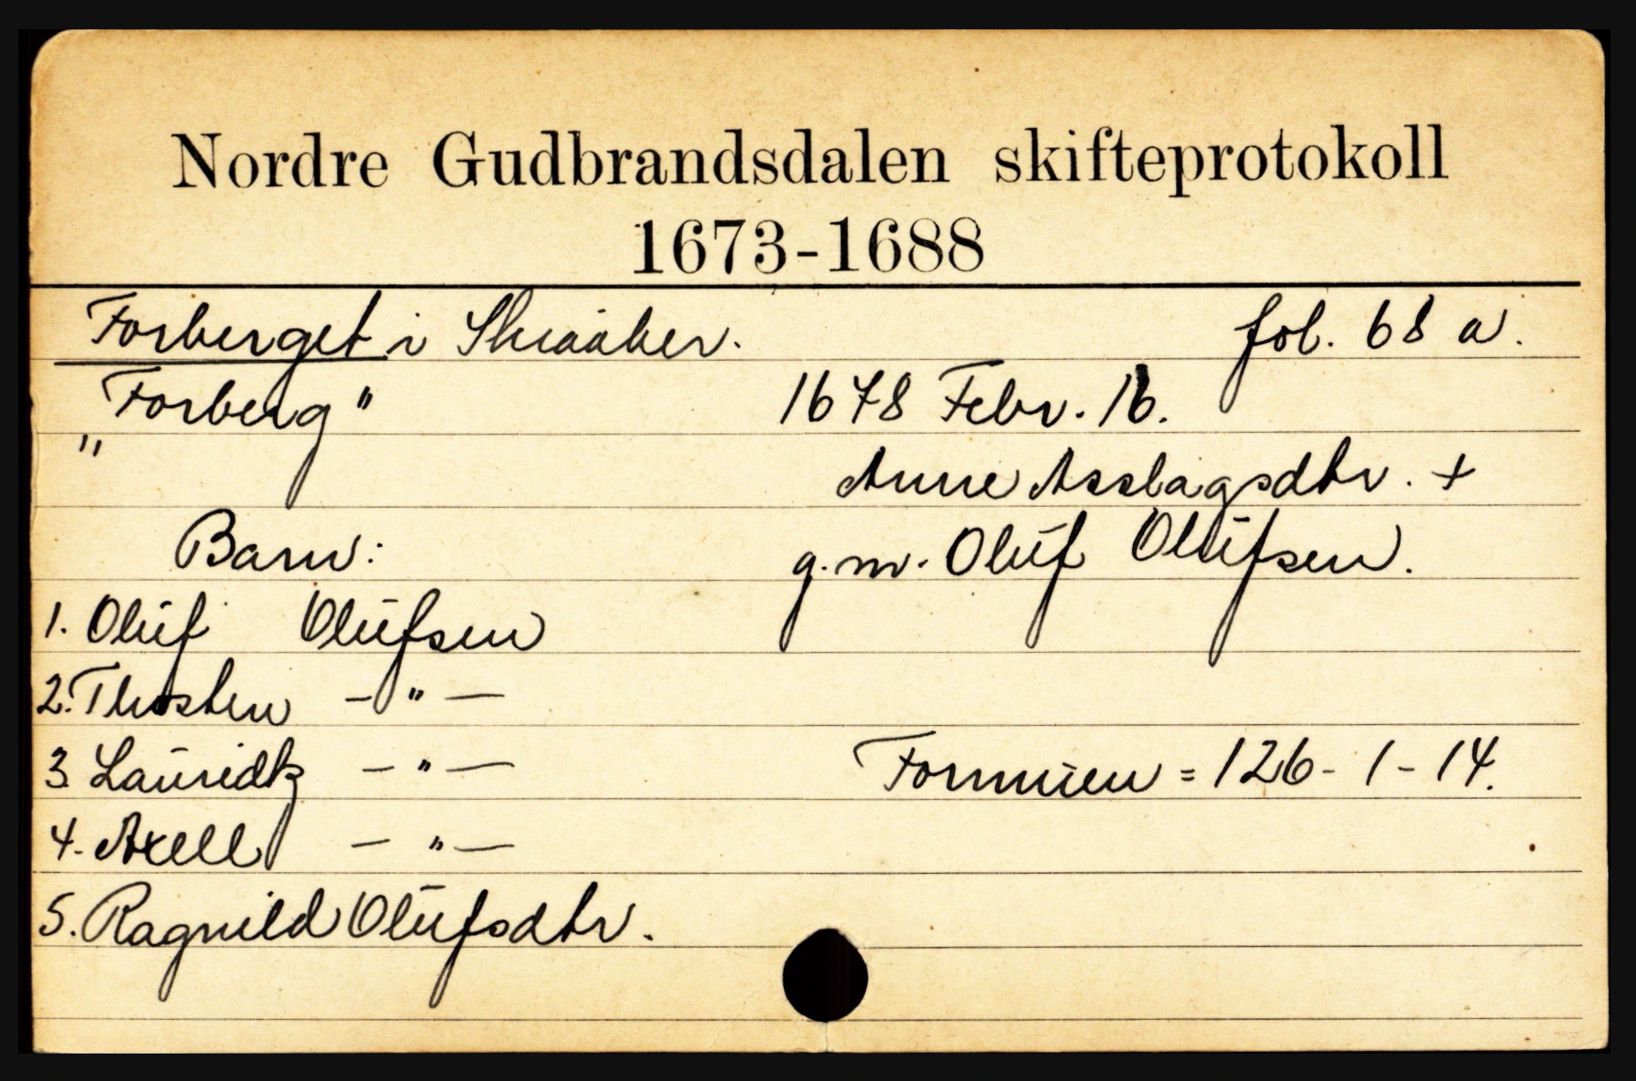 Nordre Gudbrandsdalen skifteprotokoll
1673-1688
Forberget i Skiaaker. fol. 68 a.
"Forberg" 1678 Febr. 16.
Anne Asslagsdtr. +
Barn: g.m. Oluf Olufsen.
1. Oluf Olufsen
2. Thosten - " -
3 Lauridtz - " - Formuen = 126 - 1 - 14.
4. Axell - " -
5. Ragnild Olufsdtr.